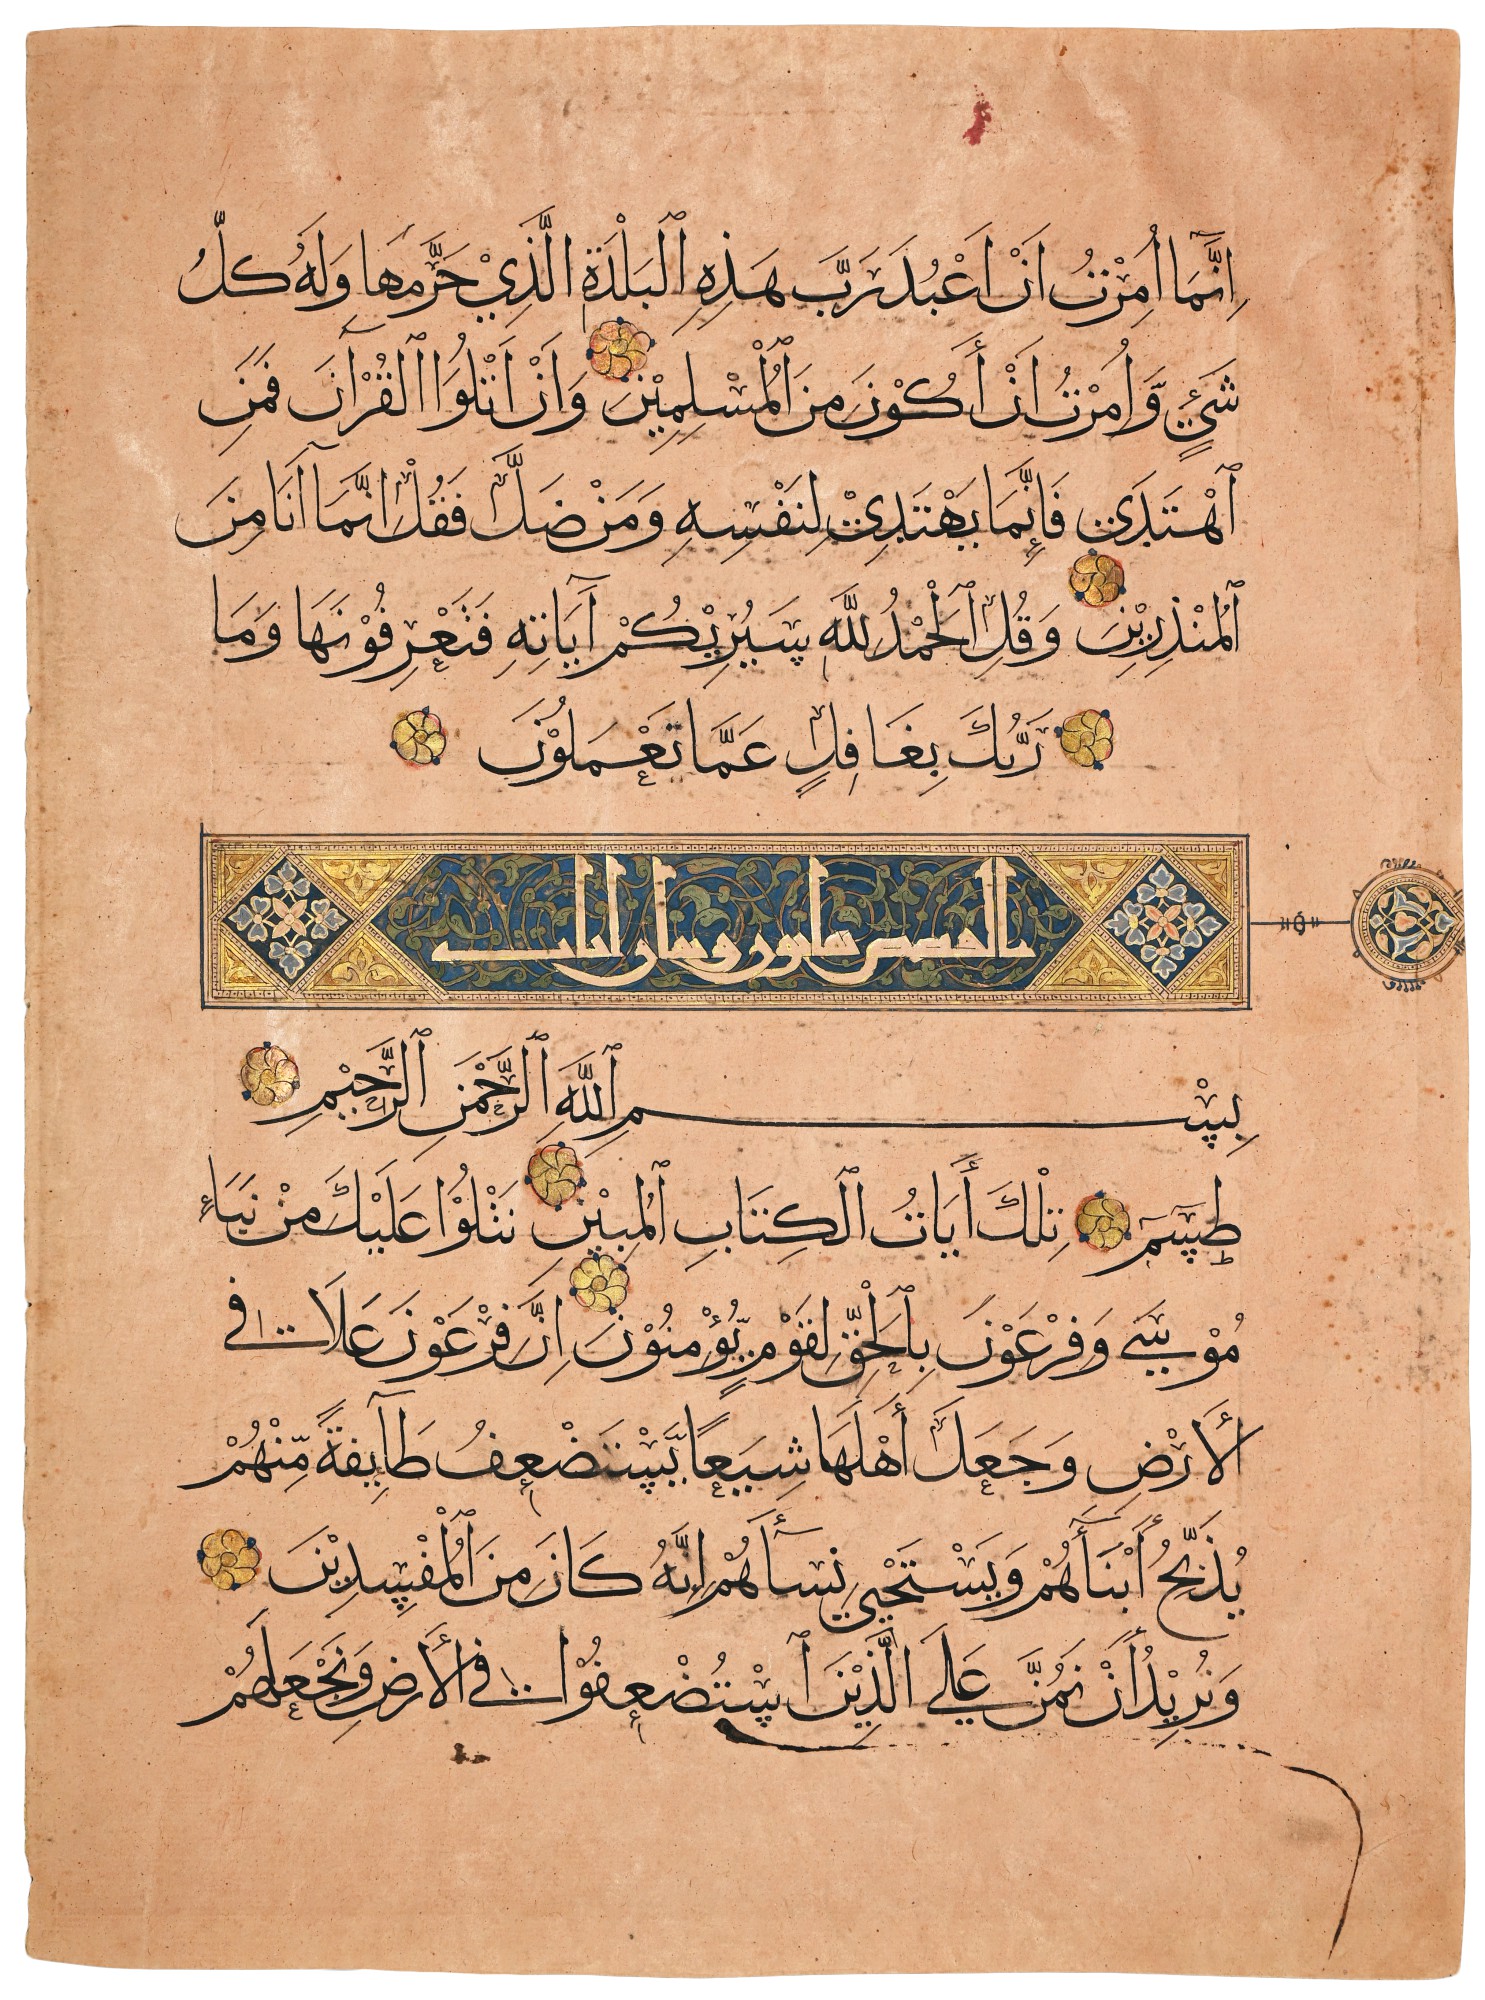 اِنَّمَا اُمِرْتُ اَنْ اَعْبُدَ رَبَّ هَذِهِ ٱلْبَلْدَةِ الَّذِيْ حَرَّمَهَا وَلَهُ كُلُّ
شَيْءٍ وَّاُمِرْتُ اَنْ أَكُوْنَ مِنَ ٱلْمُسْلِمِيْنَ وَاَنْ اَتْلُوَا ٱلْقُرْآنَ فَمَنِ
ٱهْتَدَى فَإِنَّمَا يَهْتَدِيْ لِنَفْسِهِ وَمَنْ ضَلَّ فَقُلْ اِنَّمَآ اَنَا مِنَ
ٱلْمُنْذِرِيْنَ وَقُلِ ٱلْحَمْدُ لِلَّهِ سَيُرِيْكُمْ آيَاتِهِ فَتَعْرِفُوْنَهَا وَمَا
رَبُّكَ بِغَافِلٍ عَمَّا تَعْمَلُوْنَ
ثمانون وثمان ايات
بِسْمِ ٱللَّهِ ٱلرَّحْمَنِ ٱلرَّحِيْمِ
طسم تِلْكَ أَيَاتُ ٱلْكِتَابِ ٱلْمُبِيْنِ نَتْلُوْا عَلَيْكَ مِنْ نَبَاءِ
مُوْسَى وَفِرْعَوْنَ بِٱلْحَقِّ لِقَوْمٍ يُّؤْمِنُوْنَ اِنَّ فِرْعَوْنَ عَلَا فِي
ٱلْأَرْضِ وَجَعَلَ أَهْلَهَا شِيَعًا يَّسْتَضْعِفُ طَآيِفَةً مِّنْهُمْ
يُذَبِّحُ أَبْنَآأَهُمْ وَيَسْتَحْيِيْ نِسَآأَهُمْ اِنَّهُ كَانَ مِنَ ٱلْمُفْسِدِيْنَ
وَنُرِيْدُ أَنْ نَمُنَّ عَلَى الَّذِيْنَ ٱسْتُضْعِفُوْا فِي ٱلْأَرْضِ وَنَجْعَلَهُمْ